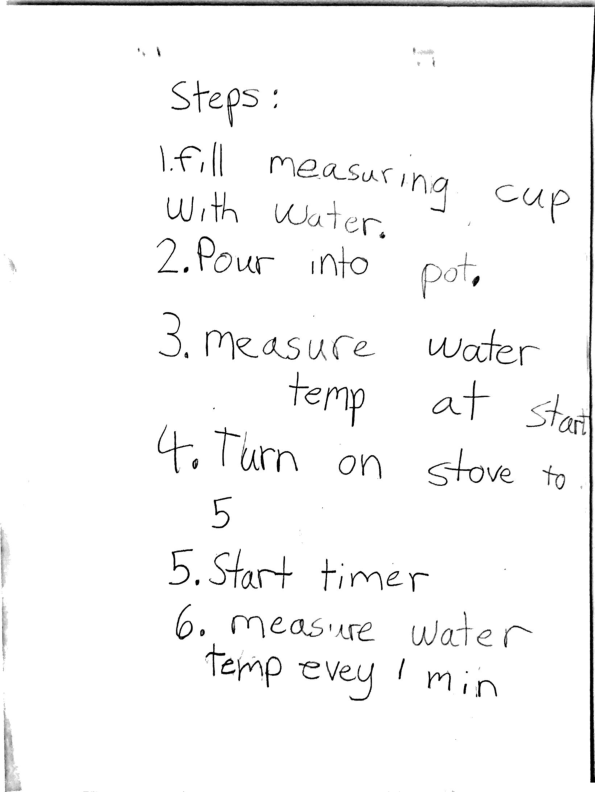 Steps:
1.fill measuring cup
with water.
2.Pour into pot.
3. measure water
temp at start
4. Turn on stove to
5
5. Start timer
6. measure water
temp evey 1 min